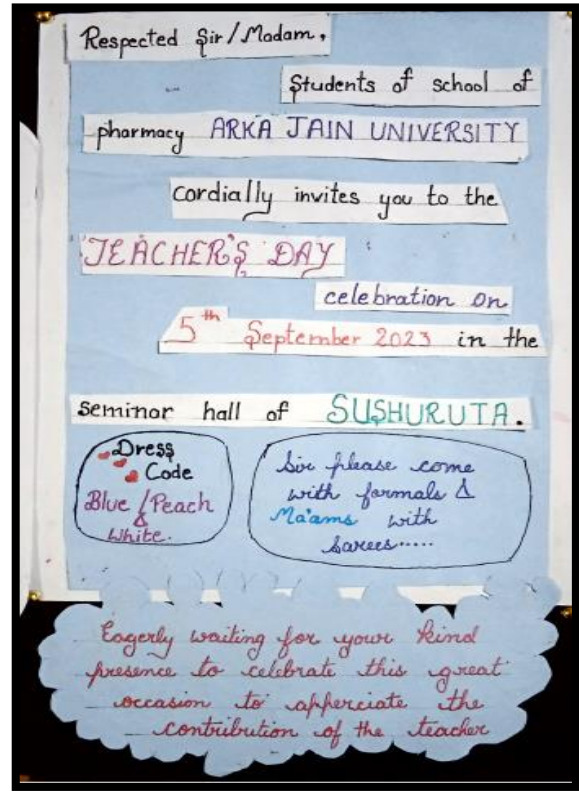 Respected Sir/Madam,
Students of school of
pharmacy ARKA JAIN UNIVERSITY
cordially invites you to the
TEACHER'S DAY
celebration on
5th September 2023 in the
seminor hall of SUSHURUTA.
Dress
Code
Blue / Peach
&
White.
Sir please come
with formals &
Ma'ams with
Sarees.....
Eagerly waiting for your kind
presence to celebrate this great
occasion to apperciate the
contribution of the teacher